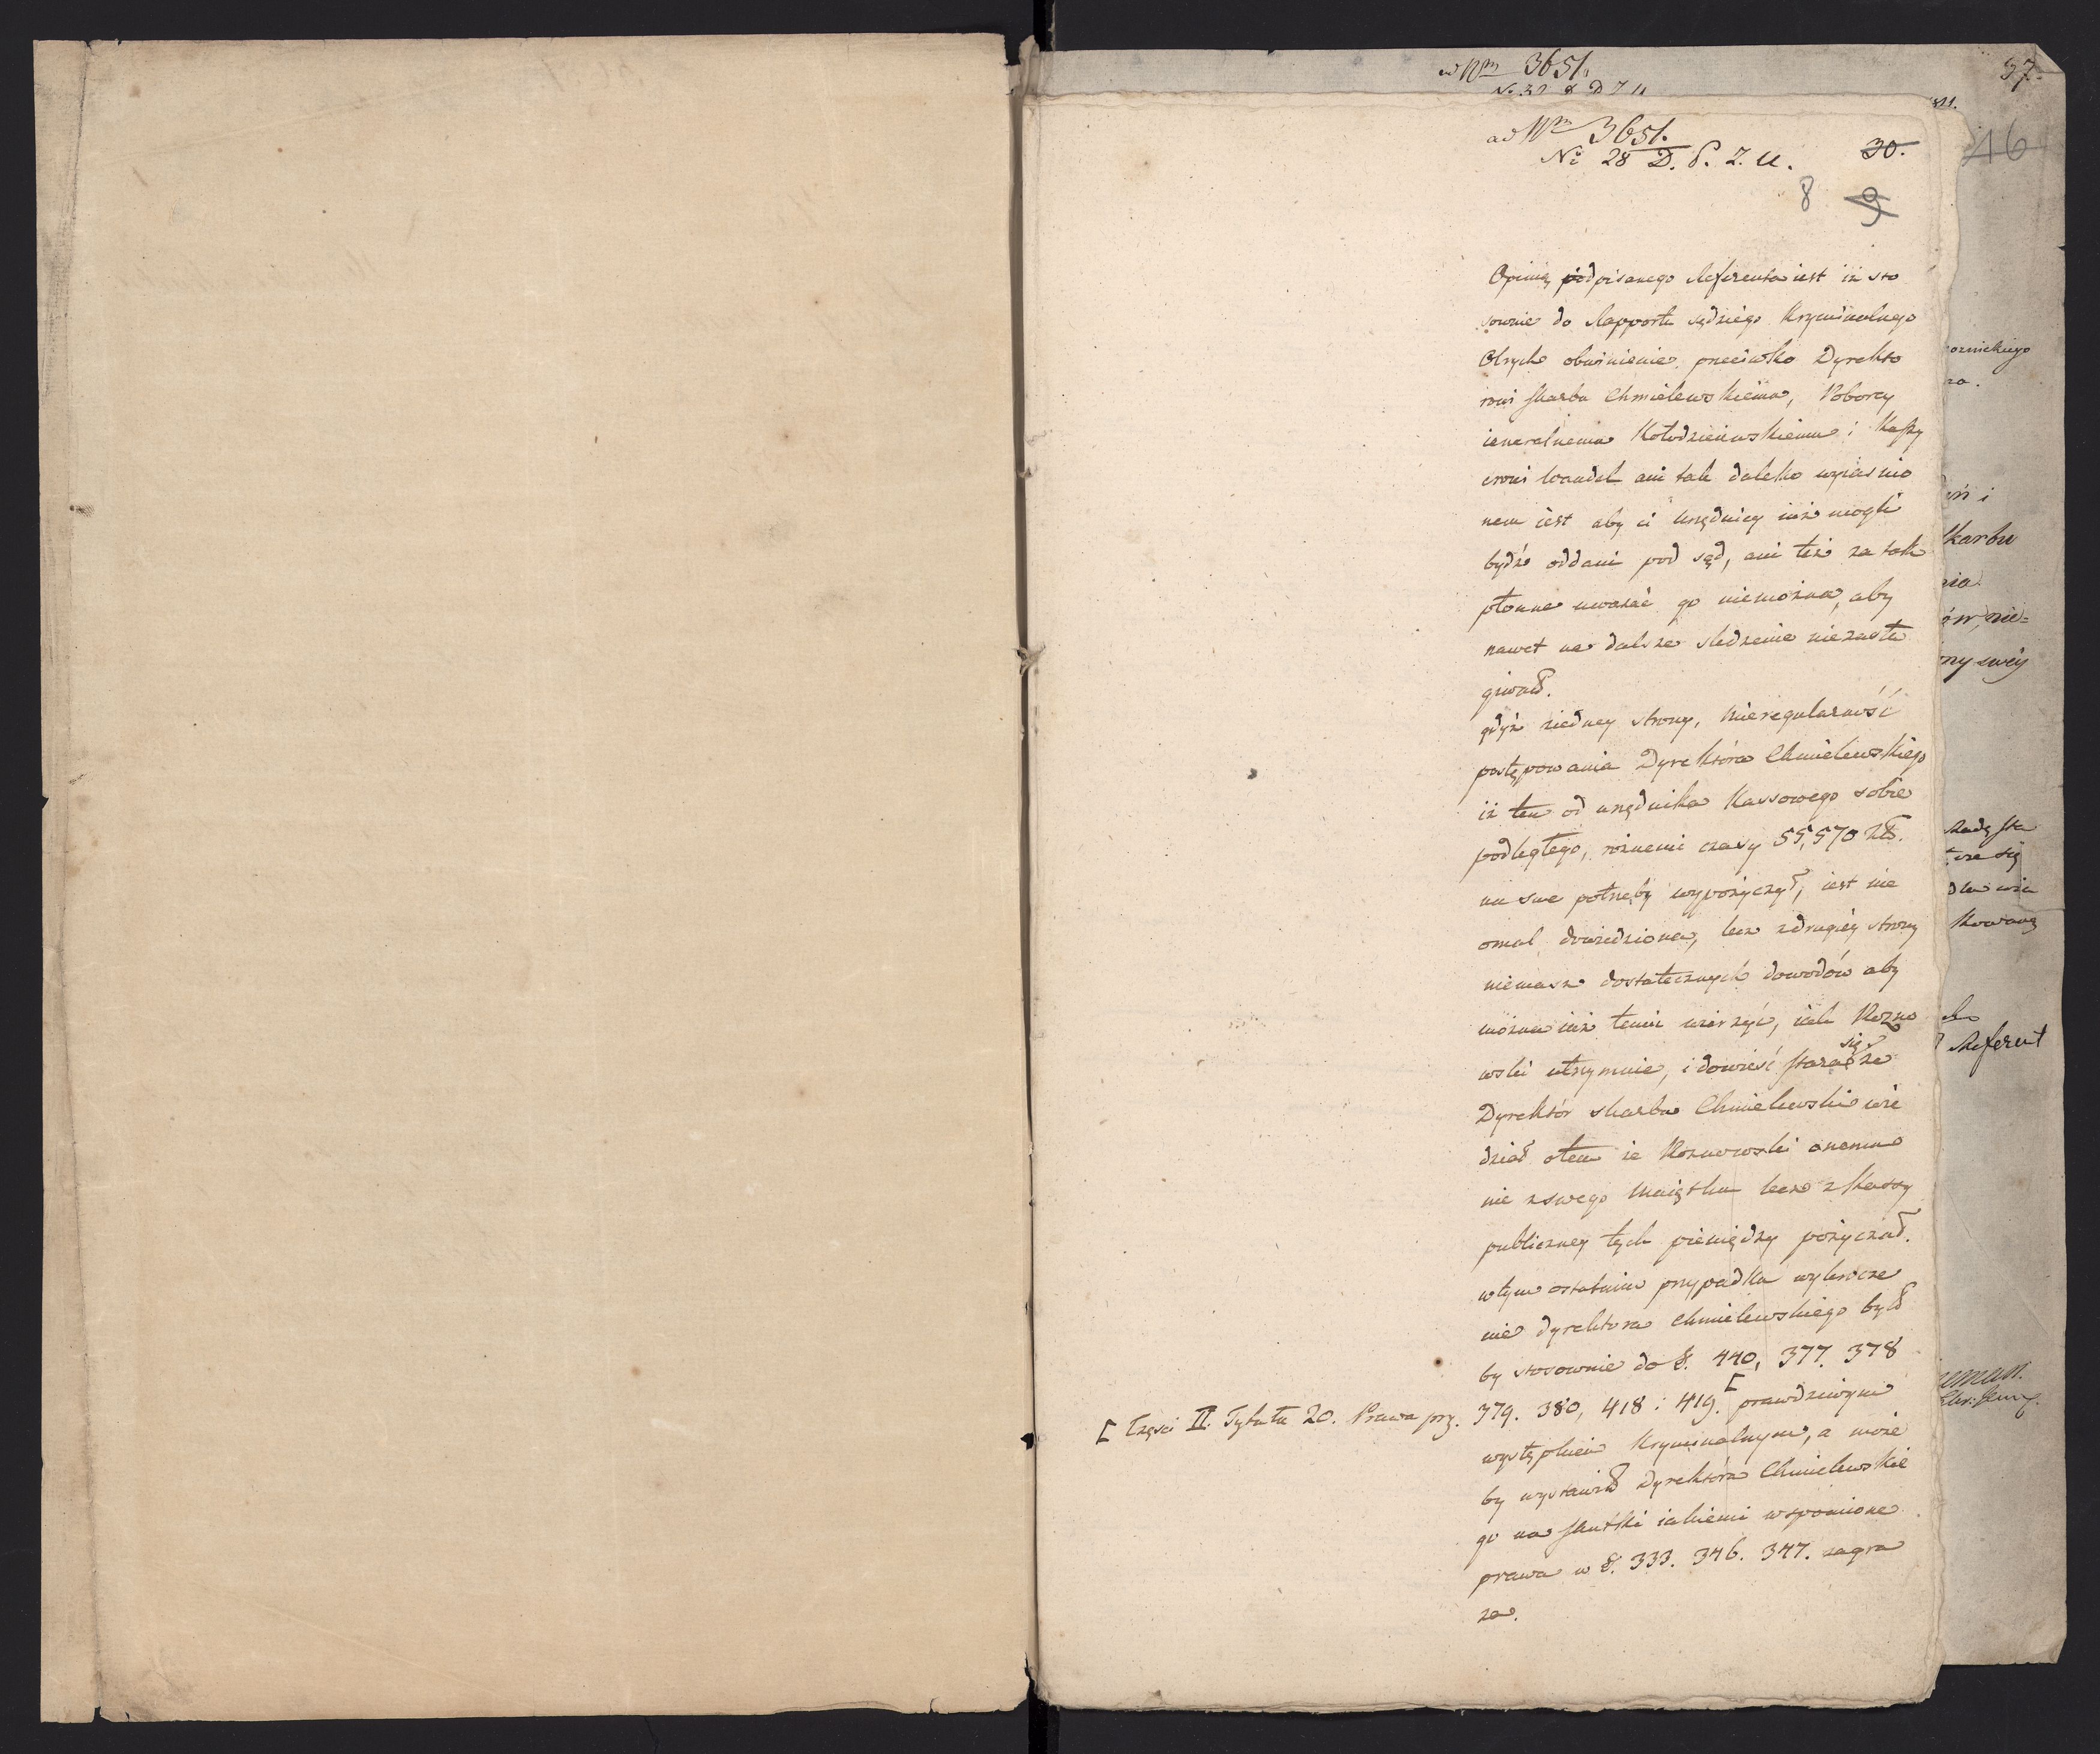 ad Nrm 3651.
37.
ad Nrm 3651.
No 28 D. P. Z. U.
30.
8 9
46
Opinią podpisanego Referenta iest iż sto
sownie do Rapportu sędziego Kryminalnego
Olrych obwinienie przeciwko Dyrekto
rowi skarbu Chmielewskiemu, Poborcy
ieneralnemu Kołodzieiewskiemu i Kassy
erowi Wandel ani tak daleko wyiasnio
nem iest aby ci Urzędnicy iuż mogli
bydź oddani pod sąd, ani też za tak
płonne uważać go niemożna, aby
nawet na dalsze sledzenie niezasłu
giwał.
gdyż ziedney strony, nieregularność
postępowania Dyrektora Chmielewskiego
iż ten od urzędnika Kassowego sobie
podległego, różnemi czasy 55,570 zł.
na swe potrzeby wypożyczył, iest nie
omal dowiedziona, lecz zdrugiéy strony
niemasz dostatecznych dowodów aby
można iuż temu wierzyć, iak Rozno
wski utrzymuie, i dowieść stara się że
Dyrektór skarbu Chmielewski wie
dział otem że Roznowski onemu
nie zswego Maiątku lecz z Kassy
publiczney tych pieniędzy pożyczał.
wtym ostatnim przypadku wykrocze
nie dyrektora Chmielewskiego było
by stosownie do §. 440, 377. 378
379. 380, 418 i 419. [ prawdziwym
[ Części II. Tytułu 20. Prawa prz.
występkiem Kryminalnym, a może
by wystawiło Dyrektora Chmielewskie
go na skutki iakiemi wspomione
prawa w §. 333. 346. 347. zagra
ża.
karbu
Referent